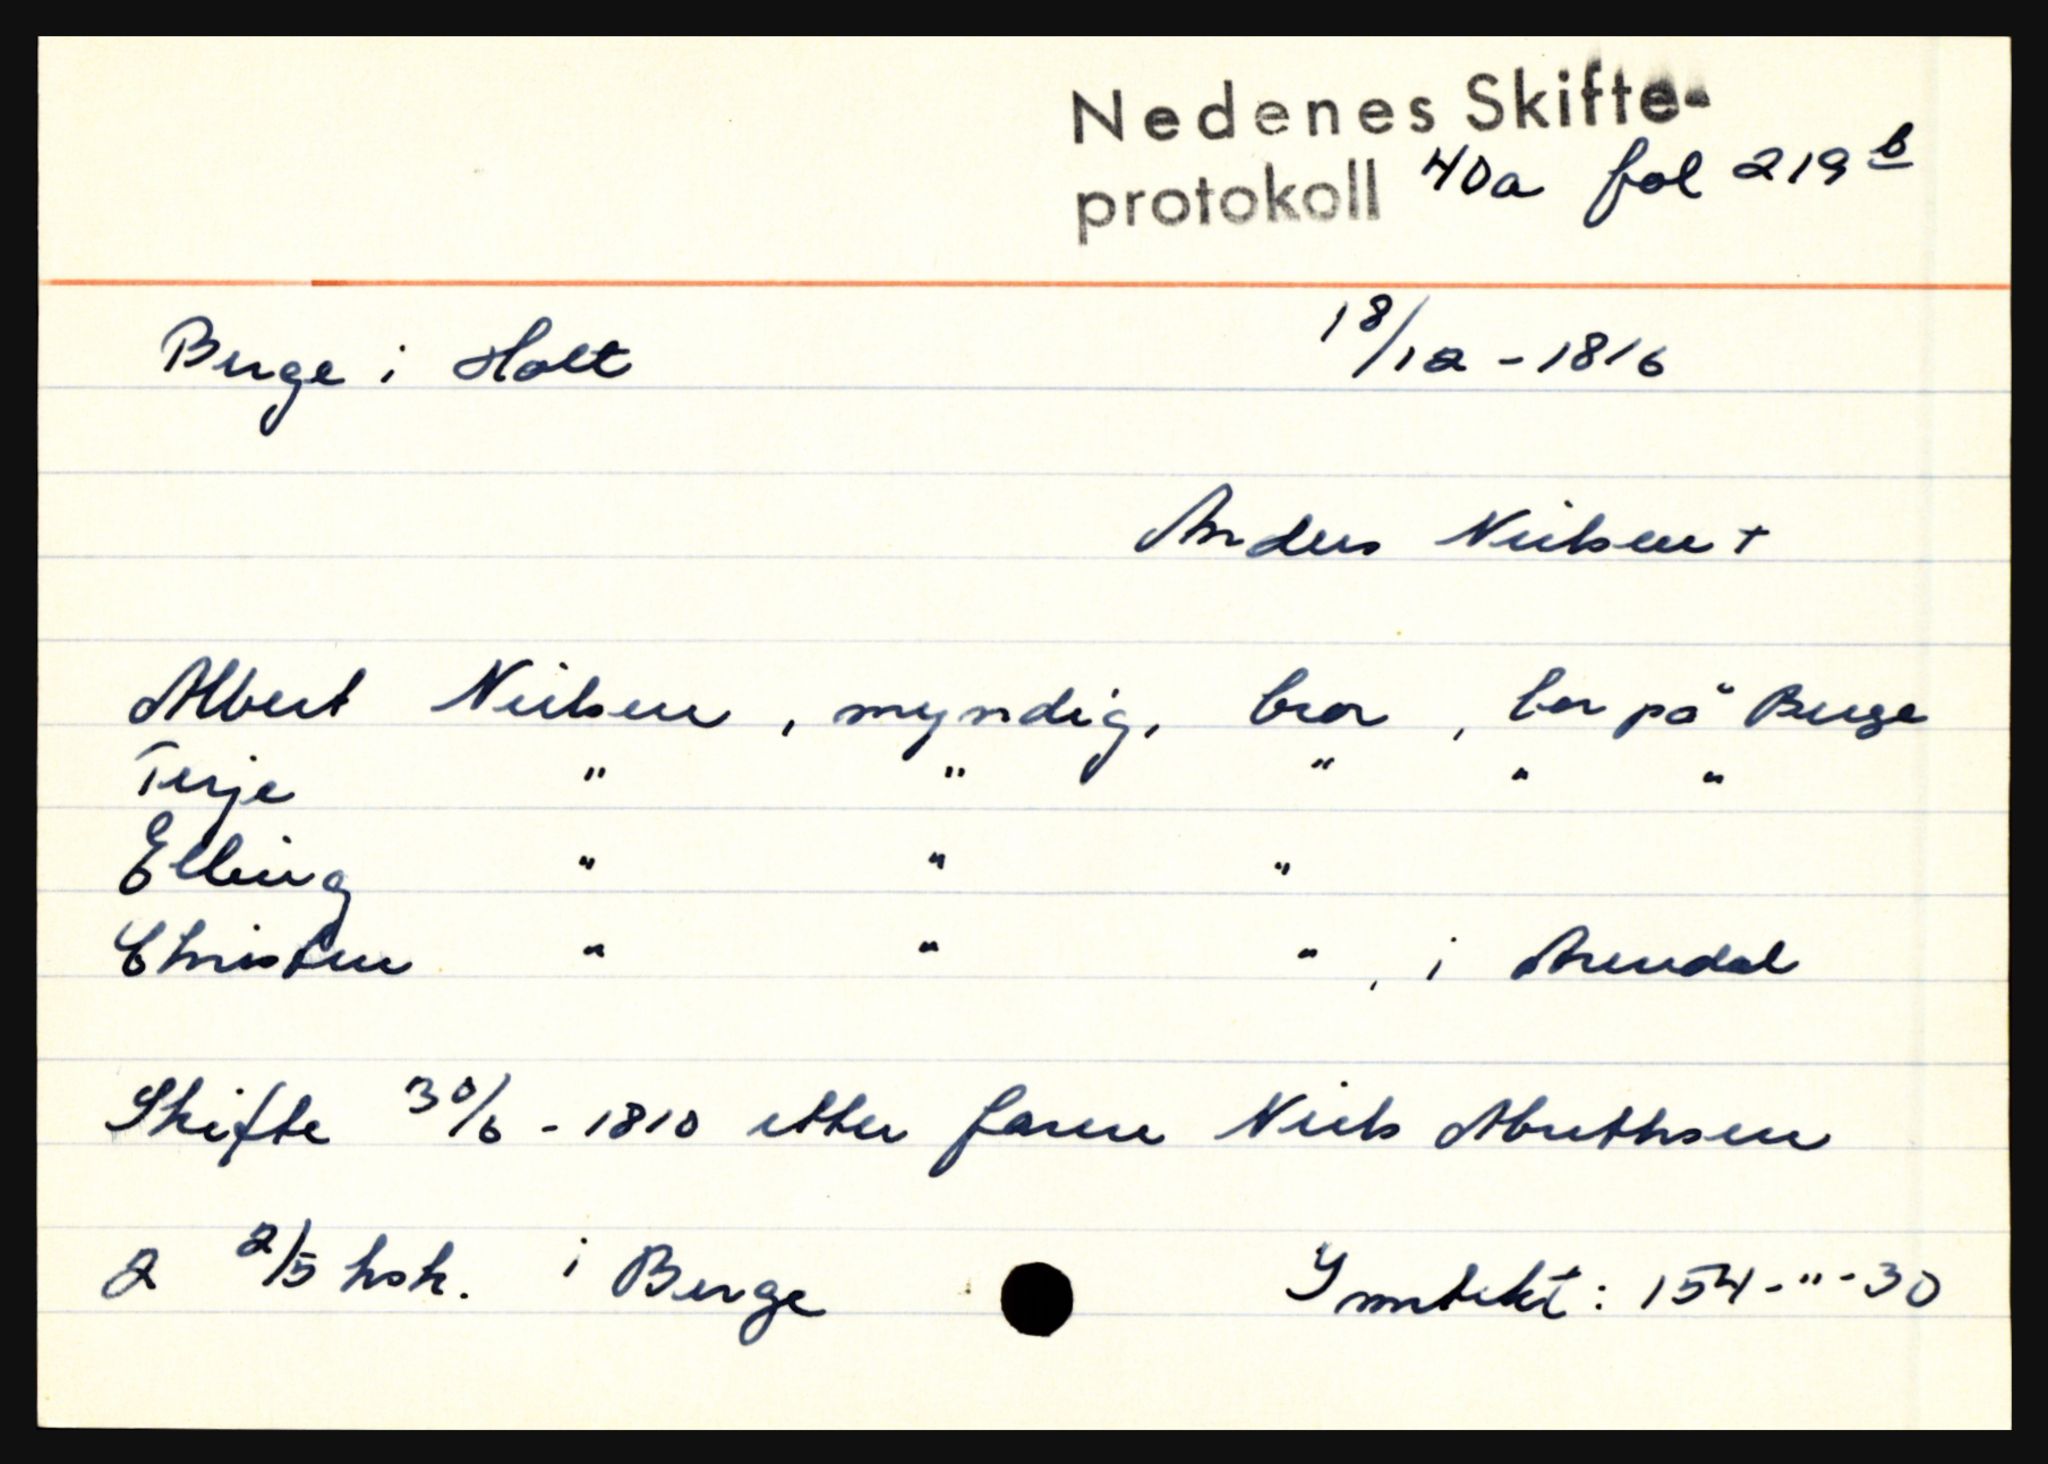 Nedenes Skifte-
protokoll 40a fol 219 b
Berge i Holt 18/12 - 1816
Anders Nielsen +
Albert Nielsen, myndig, bror, bor på Berge
Terje " " " " "
Elling " " "
Christen " " ", i Arendal
Skifte 30/6 - 1810 etter faren Niels Abrethsen
2 2/5 hsk. i Berge Inntekt: 154-"-30